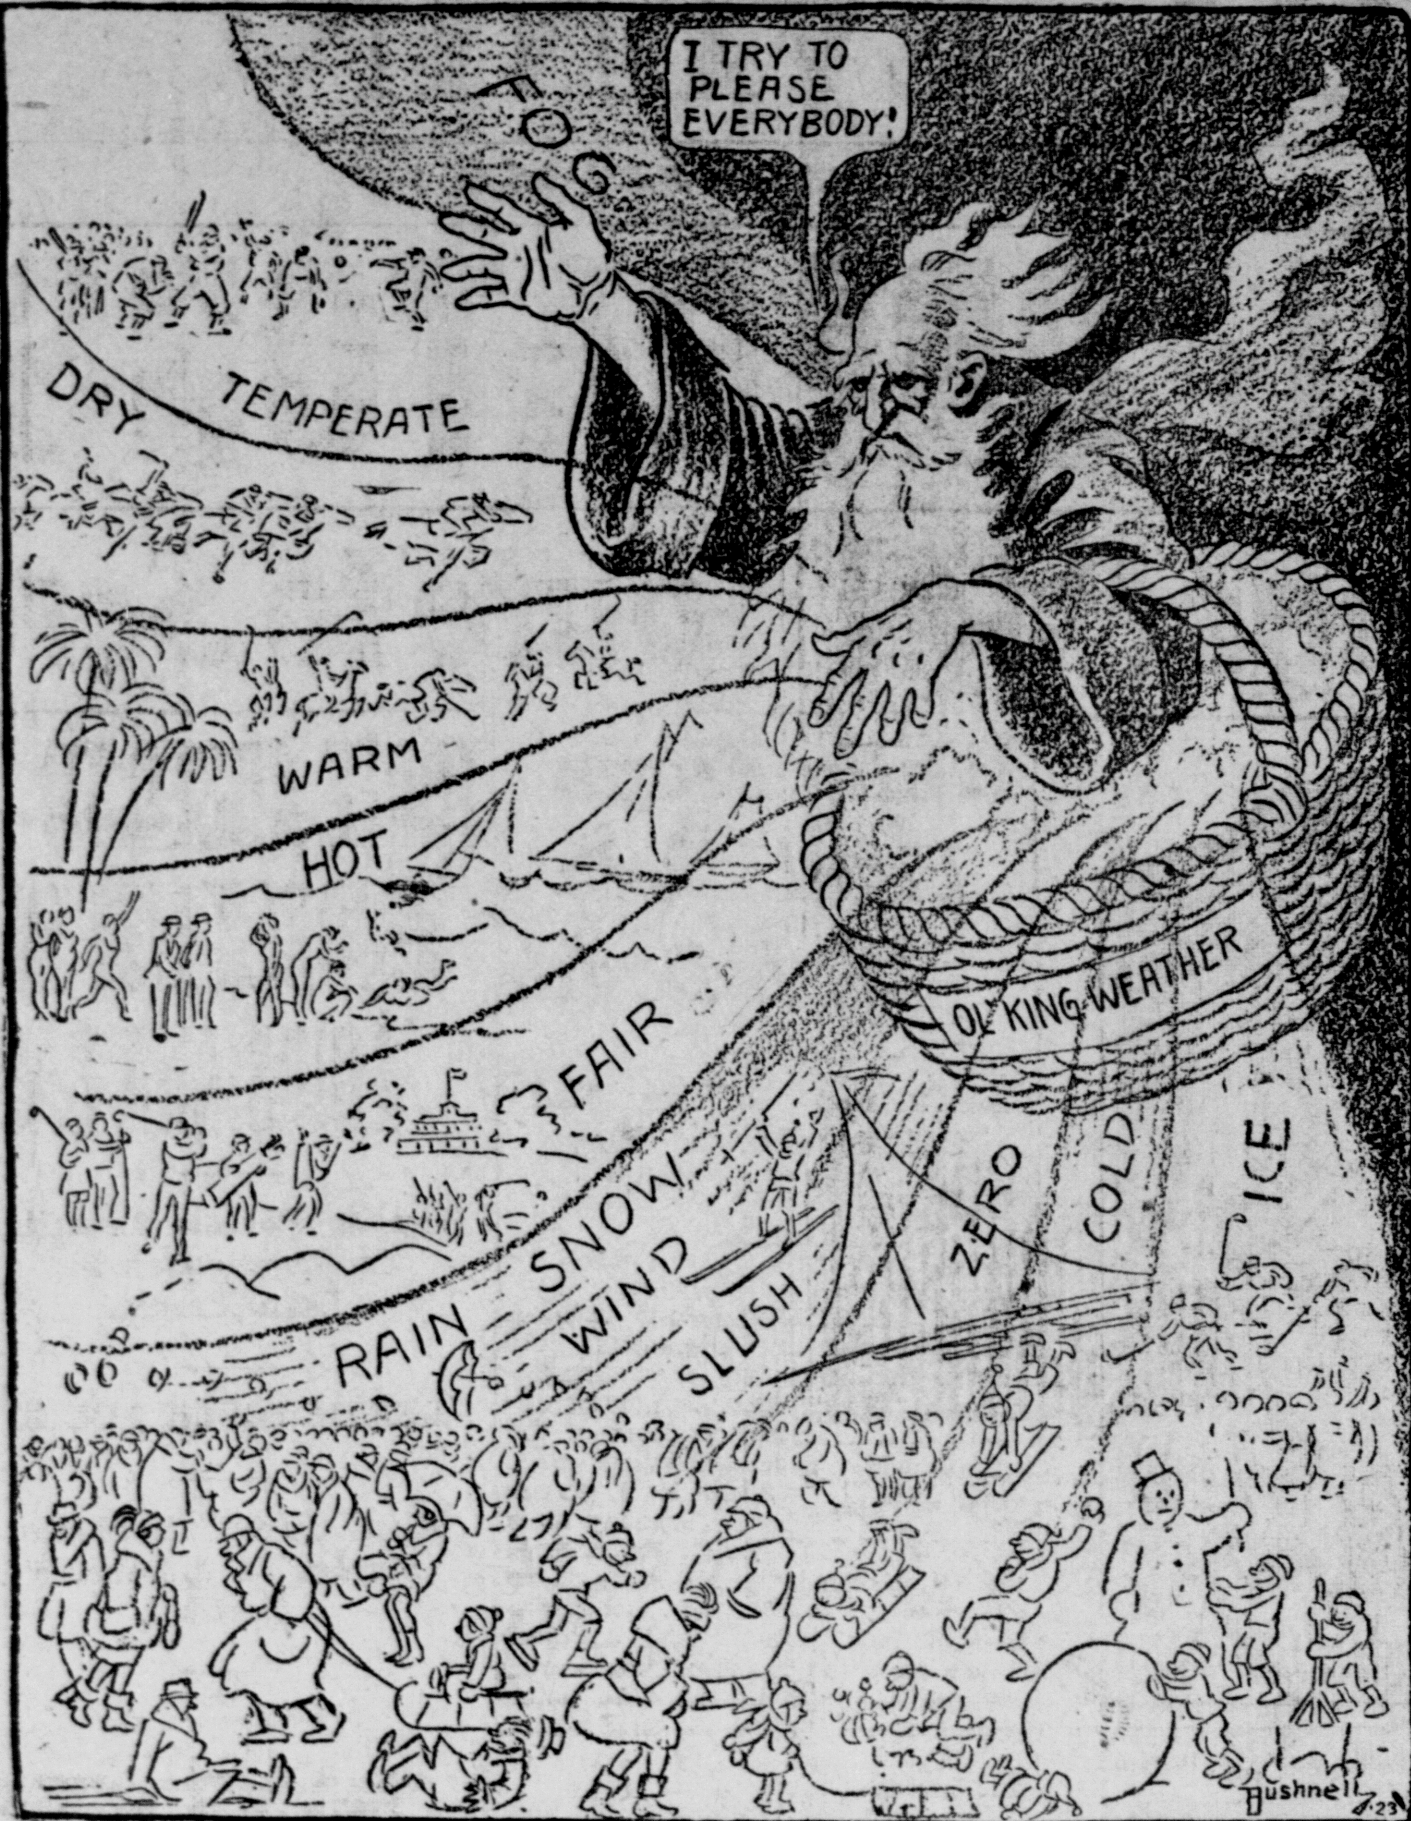 I TRY TO
PLEASE
EVERYBODY!
FOG
DRY
TEMPERATE
WARM
HOT
FAIR
OL' KING WEATHER
RAIN
SNOW
WIND
SLUSH
ZERO
COLD
ICE
Bushnell